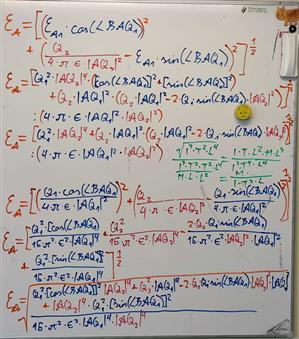 ε_A = [[E_A1 · cos(∠BAQ₁)]²
+ [Q₂ / (4·π·ε·|AQ₂|²) − E_A1 · sin(∠BAQ₁)]²]^½
ε_A = [Q₁² · |AQ₂|⁴ · [[cos(∠BAQ₁)]² + [sin(∠BAQ₁)]²]
+ Q₂ · |AQ₁|² · (Q₂ · |AQ₁|² − 2 · Q₁ · sin(∠BAQ₁) · |AQ₂|²)]^½
: (4 · π · ε · |AQ₁|² · |AQ₂|²)
ε_A = [Q₁² · |AQ₂|⁴ + Q₂ · |AQ₁|² · (Q₂ · |AQ₁|² − 2 · Q₁ · sin(∠BAQ₁) · |AQ₂|²)]^½
: (4 · π · ε · |AQ₁|² · |AQ₂|²)
ε_A = [[Q₁ · cos(∠BAQ₁) / (4·π·ε·|AQ₁|²)]² + [Q₂ / (4·π·ε·|AQ₂|²) − Q₁ · sin(∠BAQ₁) / (4·π·ε·|AQ₁|²)]²]^½
ε_A = [Q₁² · [cos(∠BAQ₁)]² / (16·π²·ε²·|AQ₁|⁴) + Q₂² / (16·π²·ε²·|AQ₂|⁴) − 2·Q₂·Q₁·sin(∠BAQ₁) / (16·π²·ε²·|AQ₁|²·|AQ₂|²)
+ Q₁² · [sin(∠BAQ₁)]² / (16·π²·ε²·|AQ₁|⁴)]^½
ε_A = √ Q₁² · [cos(∠BAQ₁)]² · |AQ₂|⁴ + Q₂² · |AQ₁|⁴ − 2·Q₂·Q₁·sin(∠BAQ₁) · |AQ₁|² · |AQ₂|²
+ |AQ₂|⁴ · Q₁² · [sin(∠BAQ₁)]²
16·π²·ε²·|AQ₁|⁴·|AQ₂|⁴